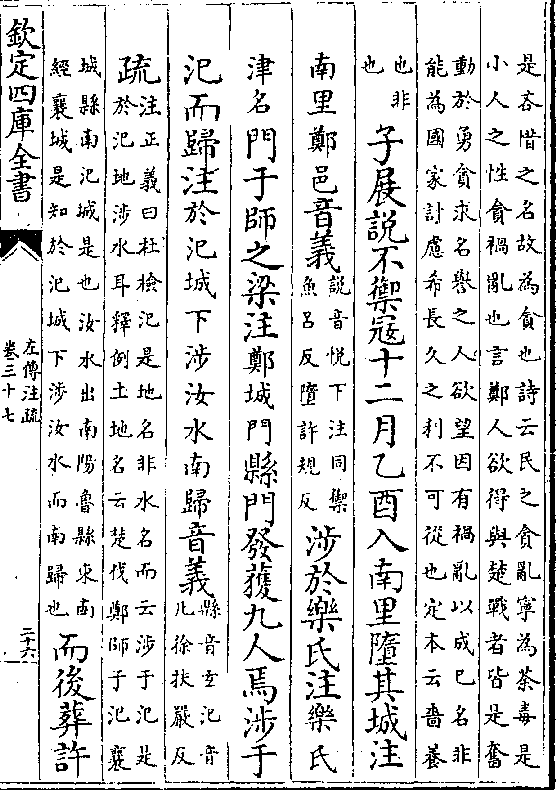 是吝惜之名故為貪也詩云民之貪亂寧為荼毒是
小人之性貪禍亂也言鄭人欲得與楚戰者皆是奮
動於勇貪求名譽之人欲望因有禍亂以成已名非
能為國家討慮希長久之利不可從也定本云嗇養
也非
也
子展說不禦寇十二月乙酉入南里墮其城注
南里鄭邑音義
說音悦下注同禦
魚呂反墮許規反
涉於樂氏注樂氏
津名門于師之梁注鄭城門縣門發獲九人焉涉于
氾而歸注於氾城下涉汝水南歸音義
縣音玄氾音
凡徐扶嚴反
疏
注正義曰杜檢氾是地名非水名而云涉于氾是
於氾地涉水耳釋例土地名云楚伐鄭師于氾襄
城縣南氾城是也汝水出南陽魯縣東南
經襄城是知於氾城下涉汝水而南歸也
而後葬許
欽定四庫全書
左傳注疏
卷三十七
二十六